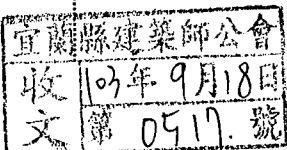 宜蘭縣建築師公會
收文
103年9月18日
第0517.號